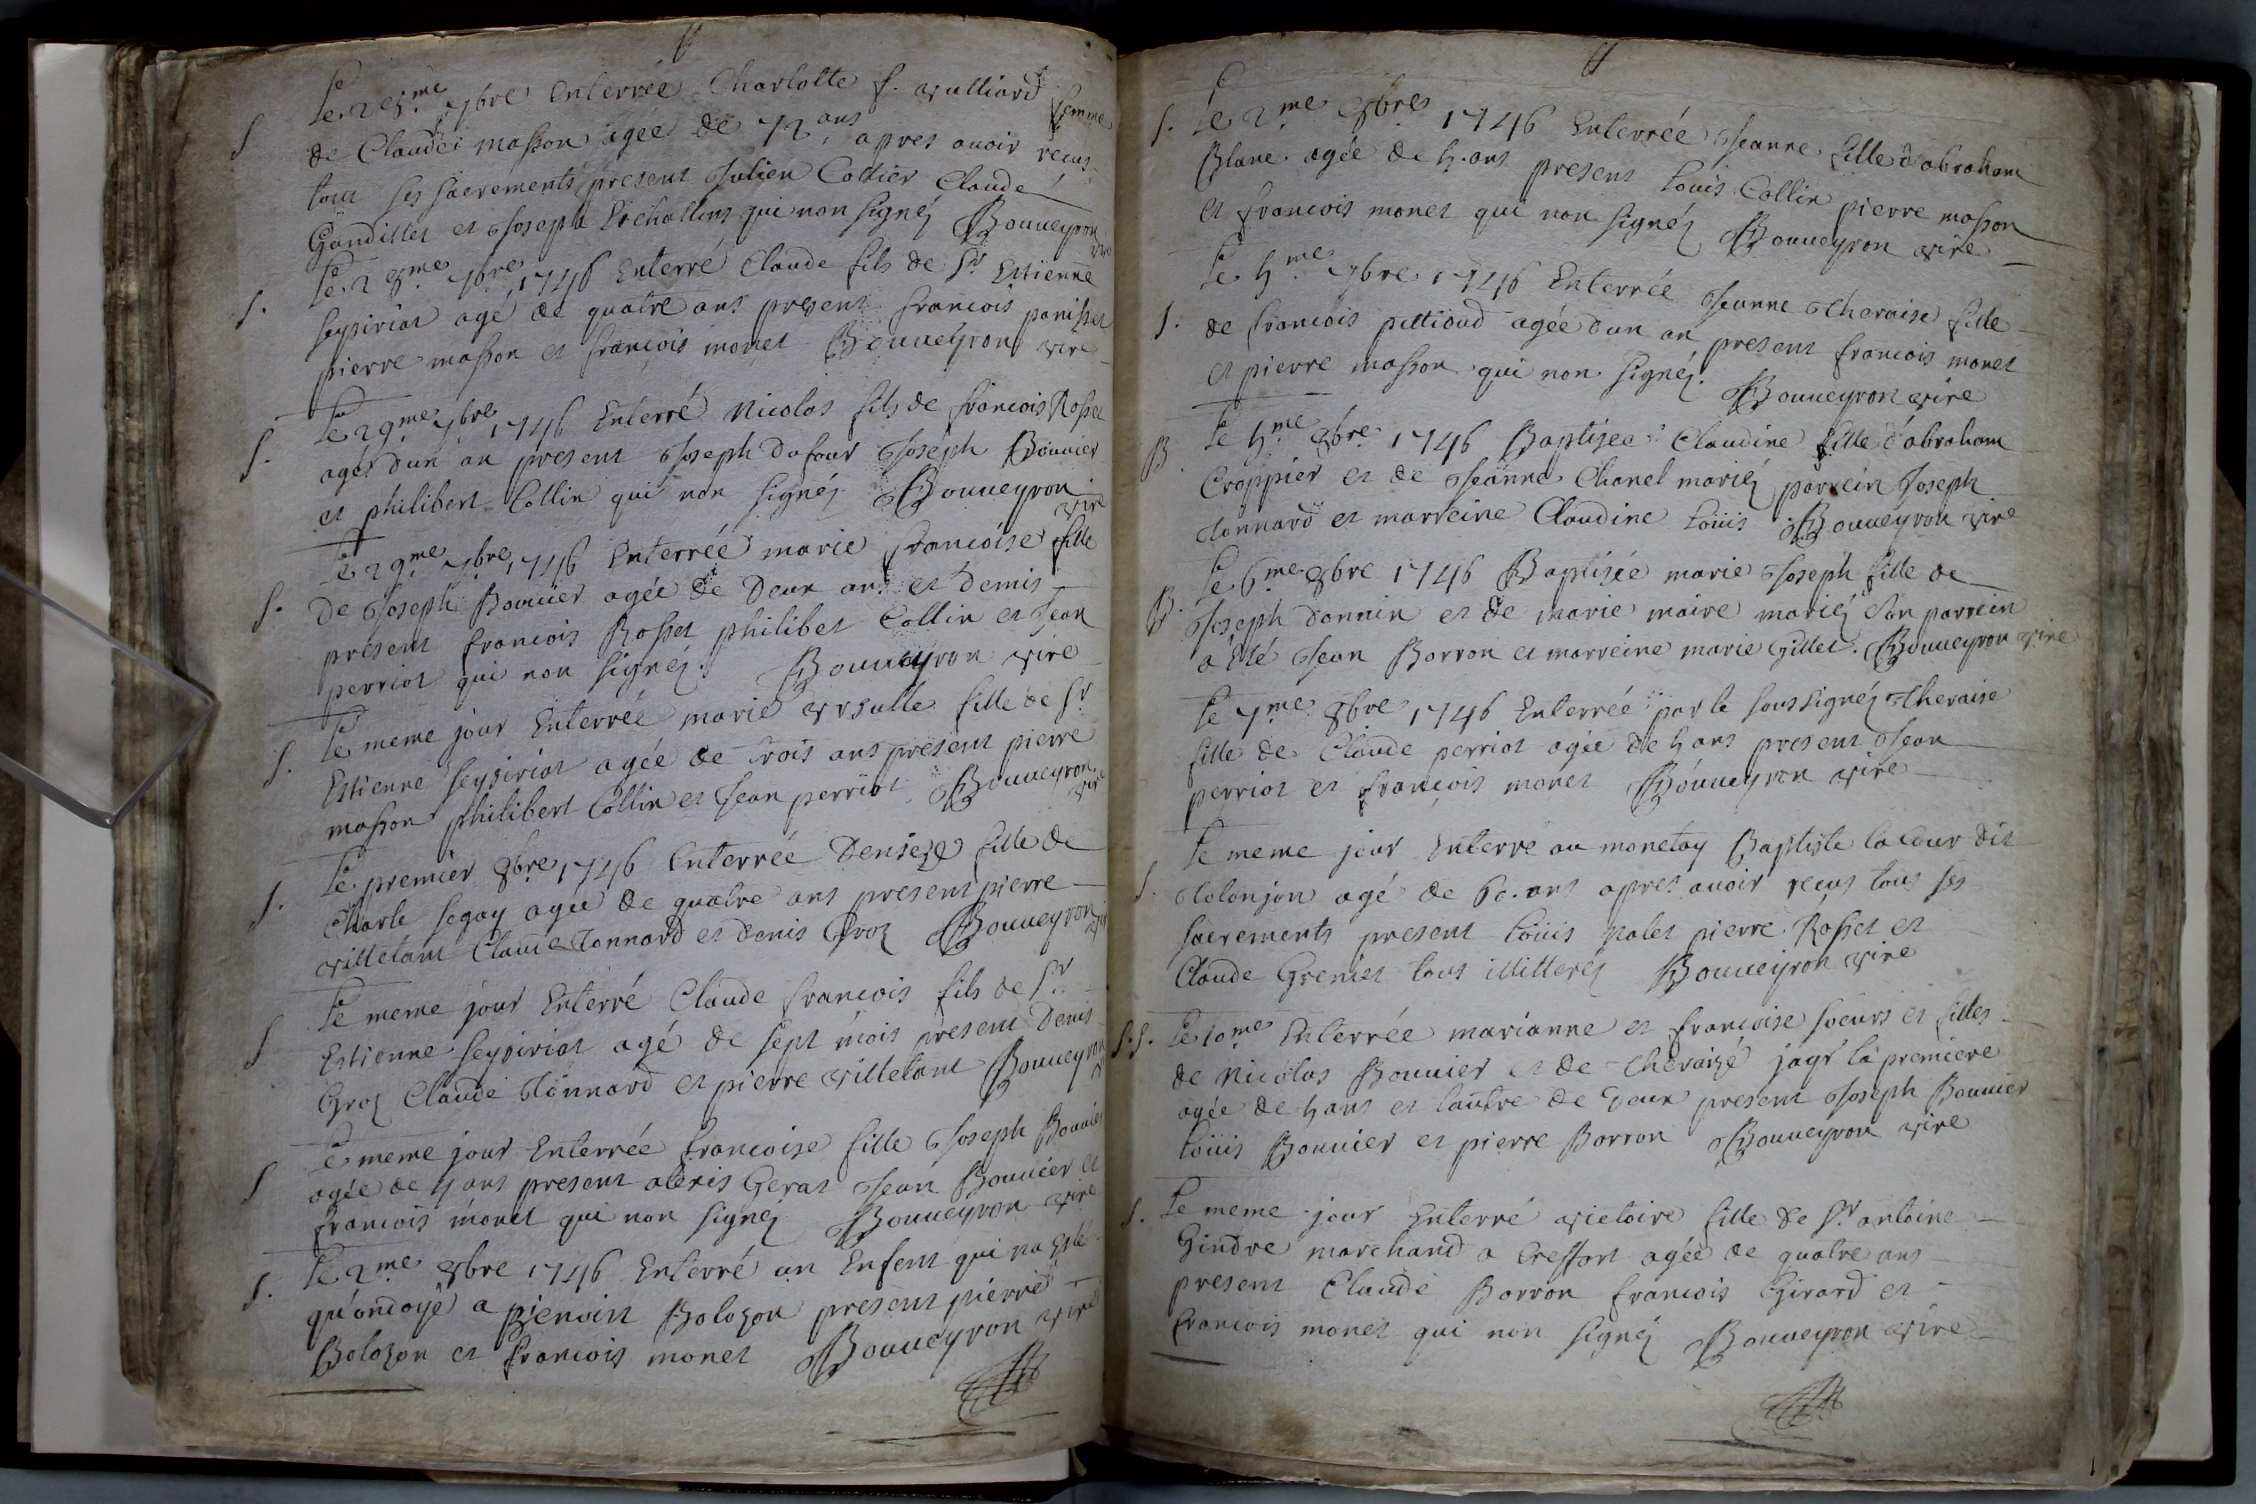 S Le 25.me 7bre Enterrée Charlotte f. vulliard femme
de Claude masson agée de 72 ans, apres avoir recus
tout ses sacrements present Julien Cottier Claude
Gandillet et Joseph qui non signéz Bouveyron vire
S. Le 28.me 7bre 1746 Enterré Claude fils de Sr Estienne
Seysiriat agé de quatre ans present francois panisset
pierre masson et françois monet Bouveyron vire
S. Le 29.me 7bre 1746 Enterré Nicolas fils de francois Rosset
agé d'un an present Joseph Dufour Joseph Bouvier
et philibert Collin qui non signéz Bouveyron vire
S. Le 29.me 7bre 1746 Enterrée marie francoise fille
de Joseph Bouvier agée de Deux ans et Demis
present francois Rosset philibet Collin et Jean
perriat qui non signéz. Bouveyron vire
S. Le meme jour Enterrée marie vrsulle fille de Sr
Estienne Seysiriat agée de trois ans present pierre
masson philibert Collin et Jean perriat Bouveyron vire
S. Le premier 8bre 1746 Enterrée Denise fille de
Charle Segay agée de quatre ans present pierre
villetant Claude Tonnard et Denis Groz Bouveyron vire
S Le meme jour Enterré Claude francois fils de Sr
Estienne Seysiriat agé de sept mois present Denis
Groz Claude Tonnard et pierre villetant Bouveyron
S Le meme jour Enterrée francoise fille Joseph Bouvier
agée de 5 ans present alexis Gerat Jean Bouvier et
francois monet qui non signéz Bouveyron vire
S. Le 2.me 8bre 1746 Enterré un Enfent qui na Esté
qu'ondoyé a Bienoist Bolozon present pierre
Bolozon et francois monet Bouveyron vire
S. Le 2.me 8bre 1746 Enterrée Jeanne fille d'abraham
Blanc agée de 5. ans present Louis Collin pierre masson
et francois monet qui non signéz Bouveyron vire
S. Le 5.me 7bre 1746 Enterrée Jeanne Theraise fille
de francois pittioud agée d'un an present francois monet
et pierre masson qui non signéz. Bouveyron vire
B Le 5.me 8bre 1746 Baptisée Claudine fille d'abraham
Croppier et de Jeanne Chanel mariéz parrein Joseph
Tonnard et marreine Claudine Loüis Bouveyron vire
B. Le 6.me 8bre 1746 Baptisée marie Joseph fille de
Joseph Donnin et de marie maire mariéz son parrein
a Eté Jean Borron et marreine marie Gillet. Bouveyron vire
Le 7.me 8bre 1746 Enterrée par le soussignéz Theraise
fille de Claude perriat agée de 5 ans present Jean
perriat et françois monet Bouveyron vire
S. Le meme jour Enterré au monetay Baptiste la Cour dit
Tolonjon agé de 60. ans apres avoir recus tous ses
sacrements present Loüis Nalet pierre Rosset et
Claude Greniet tous illitteréz Bouveyron vire
S.S. Le 10.me Enterrée marianne et francoise soeurs et filles
de Nicolas Bouvier et de Theraize jayr la premiere
agée de 5 ans et l'autre de Deux present Joseph Bouvier
Loüis Bouvier et pierre Borron Bouveyron vire
S. Le meme jour Enterré victoire fille de Sr antoine
Gindre marchand a Treffort agée de quatre ans
present Claude Borron francois Girard et
francois monet qui non signéz Bouveyron vire